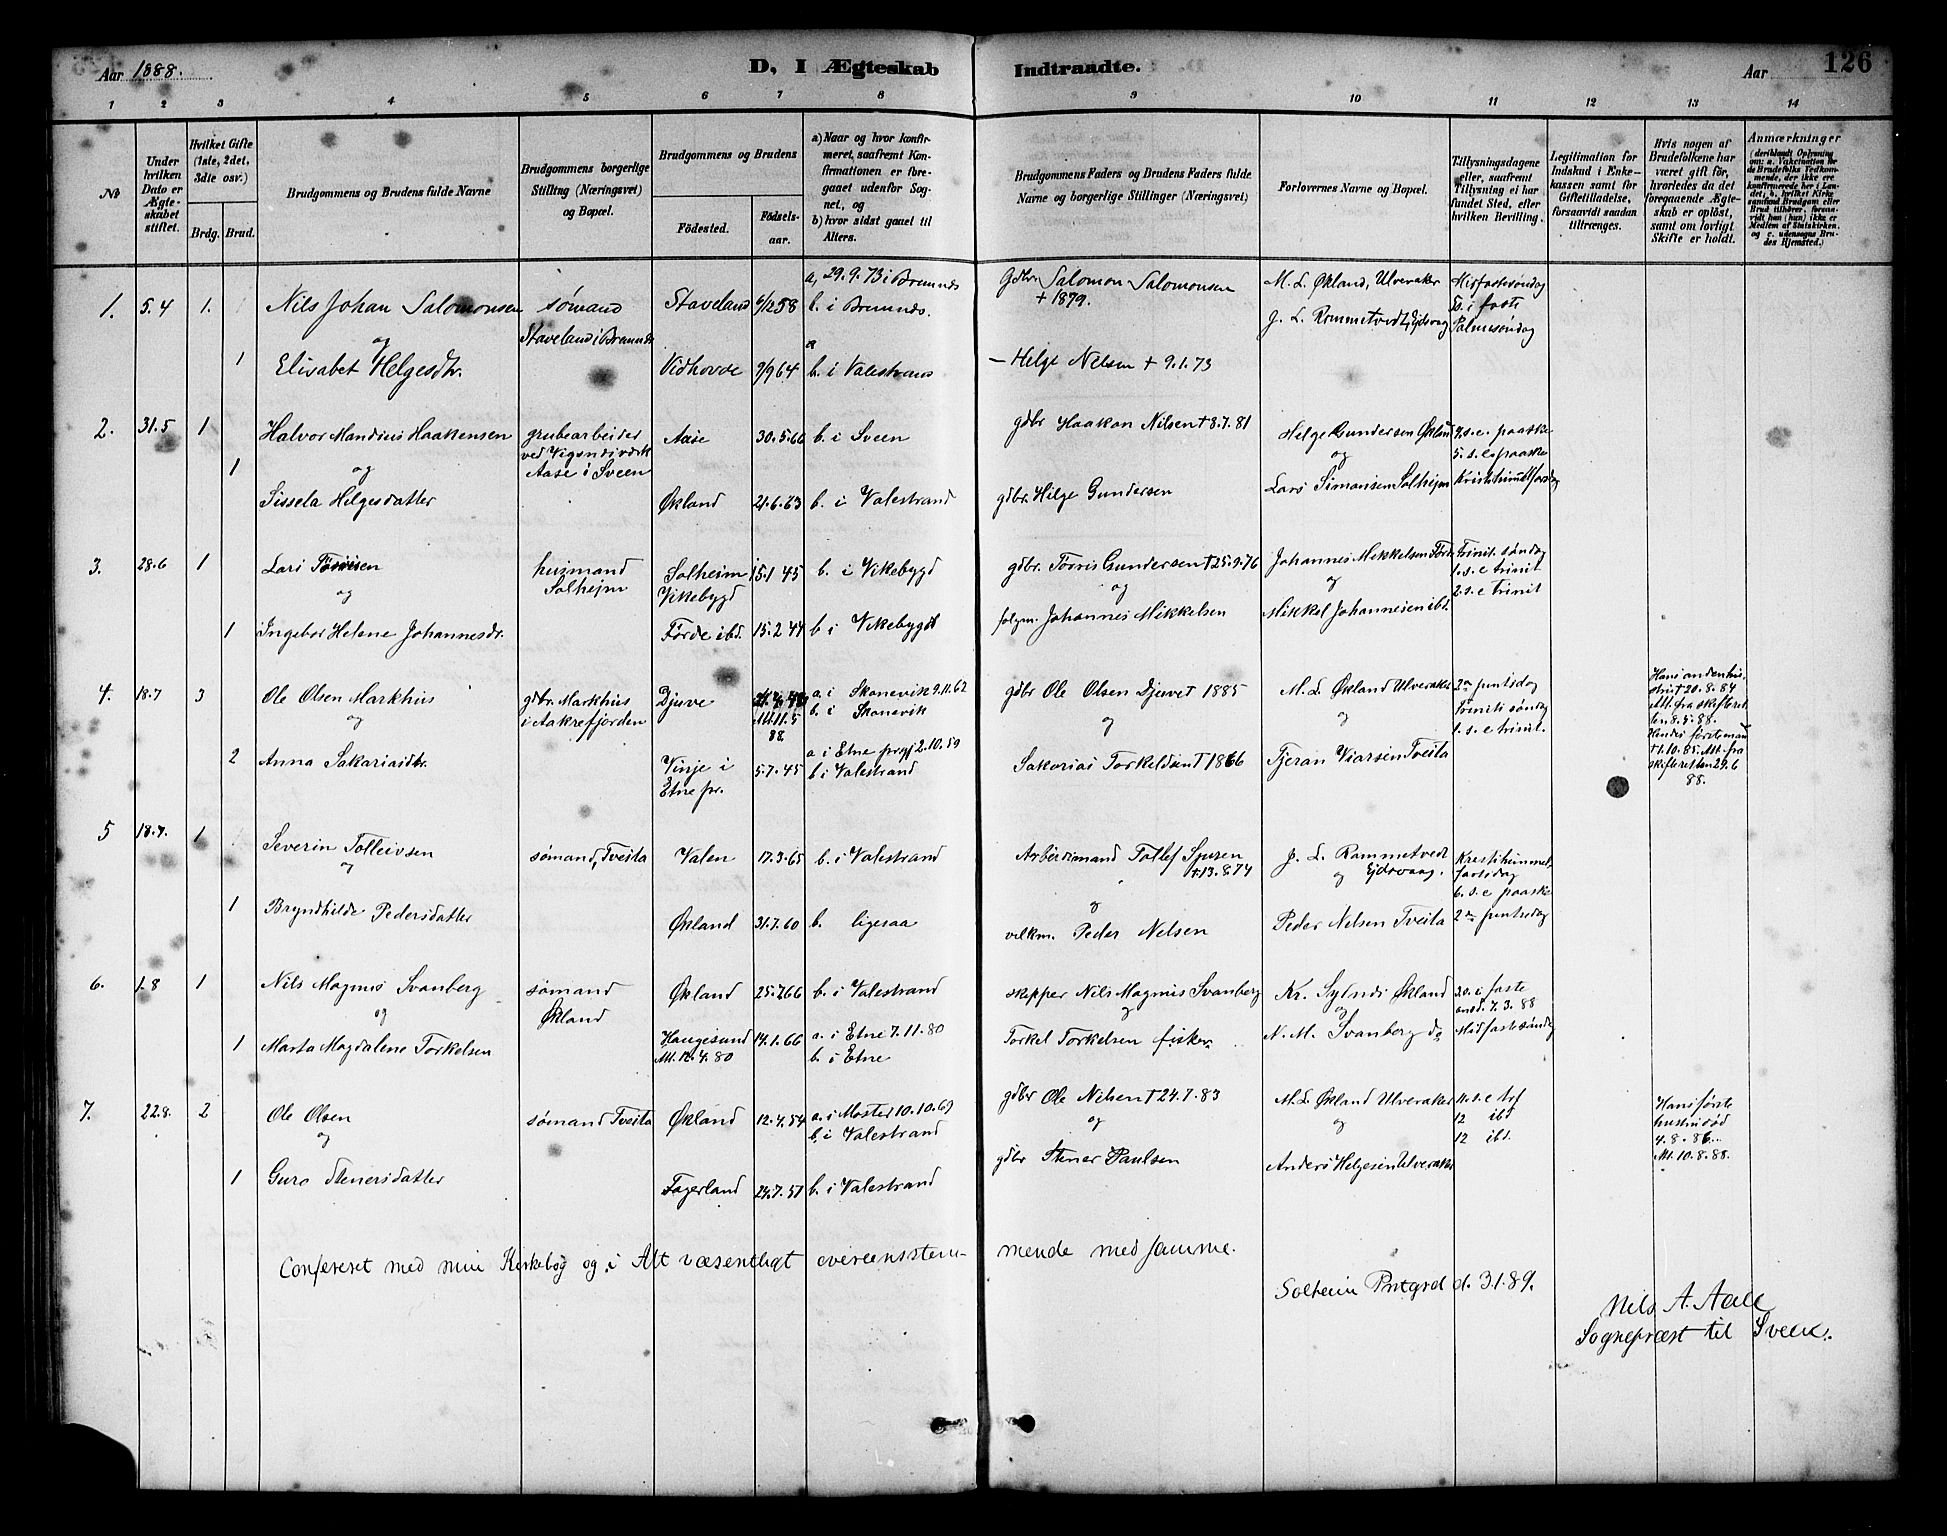 Aar 1888.
D, I Ægteskab Indtraadte.
Aar 126
1 2 3 4 5 6 7 8 9 10 11 12 13 14
No
Under hvilken Dato er Ægteskabet stiftet.
Hvilket Gifte (1ste, 2det, 3die osv.)
Brdg. Brud.
Brudgommens og Brudens fulde Navne
Brudgommens borgerlige Stilling (Næringsvei) og Bopæl.
Brudgommens og Brudens
Fødested. Fødselsaar.
a) Naar og hvor konfirmeret, saafremt Konfirmationen er foregaaet udenfor Sognet, og
b) hvor sidst gaaet til Alters.
Brudgommens Faders og Brudens Faders fulde Navne og borgerlige Stillinger (Næringsvei)
Forlovernes Navne og Bopæl.
Tillysningsdagene eller, saafremt Tillysning ei har fundet Sted, efter hvilken Bevilling.
Legitimation for Indskud i Enkekassen samt for Giftetilladelse, forsaavidt saadan tiltrænges.
Hvis nogen af Brudefolkene har været gift før, hvorledes da det foregaaende Ægteskab er opløst, samt om lovligt Skifte er holdt.
Anmærkninger (deriblandt Oplysning om: a. Vakcination for de Brudefolks Vedkommende, der ikke ere konfirmerede her i Landet, b. hvilket Kirkesamfund Brudgom eller Brud tilhører, forsaavidt han (hun) ikke er Medlem af Statskirken, og c. udensogns Brudes Hjemsted.)
1. 5.4 1. Nils Johan Salomonsen sømand Staveland 6/12 58 a, 29.9.73 i Bremnes b. i Bremnes. Gdbr. Salomon Salomonsen + 1879. M. L. Økland, Ulveraker
og Staveland i Bremnes J. L. Rommetvedt, Ejdsvag Palmesøndag
1 Elisabet Helgesdtr. Vidhovde 9/9 64 b. i Valestrand — Helge Nelsen + 9.1.73
2. 31.5 1 Halvor Mandius Haakensen grubearbeider ved Vigsnesværk Aase i Sveen Aase 30.5.66 b. i Sveen gdbr Haakon Nilsen + 8.7.81 Helge Gundersen Økland 4. s. e. paaske
og og 5. s. e. paaske
1 Sissela Helgesdatter Økland 21.6.63 b. i Valestrand gdbr. Helge Gundersen Lars Simonsen Solhejm Kristihimmelfartsdag
3. 28.6 1 Lars husmand Solhejm Solheim Vikebygd 15.1 45 b. i Vikebygd gdbr. Tooris Gundersen + 25.9.76 Johannes Mikkelsen Førde Trinit. søndag
og og og 1. s. e trinit
2. s. e trinit
1 Ingebor Helene Johannesdr. Førde ibd. 15.2 44 b i Vikebygd Johannes Mikkelsen Mikkel Johannesen ibd.
4. 18.7 3 Ole Olsen Markhus gbr. Markhus i Aakrefjorden Djuve Att. 11.5 88. a. i Skonevik 9.11.62 b. i Skonevik gdbr Ole Olsen Djuve + 1885 M. L. Økland Ulveraker 2en pintsdag
og og og Trinit. søndag
1. s. e trinit.
Hans anden hustru + 20.8.84 Att. fra skifteretten 8.5.88. Hendes første mand + 1.10.85. Att. fra skifteretten 29.6 88.
2 Anna Sakariasdtr. Vinje i Etne pr. 5.7.45 a i Etne prgj 2.10.59 b i Valestrand Sakarias Torkeldsen + 1866 Tjeran Viarsen Tveita
5 18.7. 1 Severin Tolleivsen sømand, Tveita Valen 17.3.65 b. i Valestrand Arbeidsmand Tollef + 13.8.74 J. L. Rommetvedt Ejdsvaag. Kristihimmelfartsdag
og og og 6. s. e paaske
1 Bryndhilde Pedersdatter Økland 31.7.60 b. ligesaa Peder Nelsen Peder Nelsen Tveita 2en pintsdag
6. 1.8 1 Nils Magnus Svanberg sømand Økland Økland 25.7.66 b. i Valestrand skipper Nils Magnus Svanberg Kr. Sylnes Økland 3 s. i faste
og og og onsd. 7.3.88
1 Marta Magdalene Torkelsen Haugesund Att. 12.4.80 14.1.66 a. i Etne 7.11.80 b. i Etne Torkel Torkelsen fisker N. M. Svanberg do Midfastesøndag
7. 22.8. 2 Ole Olsen sømand Tveita Økland 12.4.54 a. i Moster 10.10.69 b. i Valestrand gdbr Ole Nilsen + 24.7.83 M. L. Økland Ulveraker 11. s. e tref
og og og 12 ibd
12 ibd.
Hans første hustru død 4.8.86. Att. 10.8.88.
1 Guro Stenersdatter Fagerland 24.7.57 b. i Valestrand gdbr Stener Paulsen Anders Helgesen Ulveraker
Confereret med min Kirkebog og i Alt væsentligt overensstemmende med samme.
Solheim Prstgrd d. 3.1.89.
Nils A. Aall
Sognepræst til Sveen.